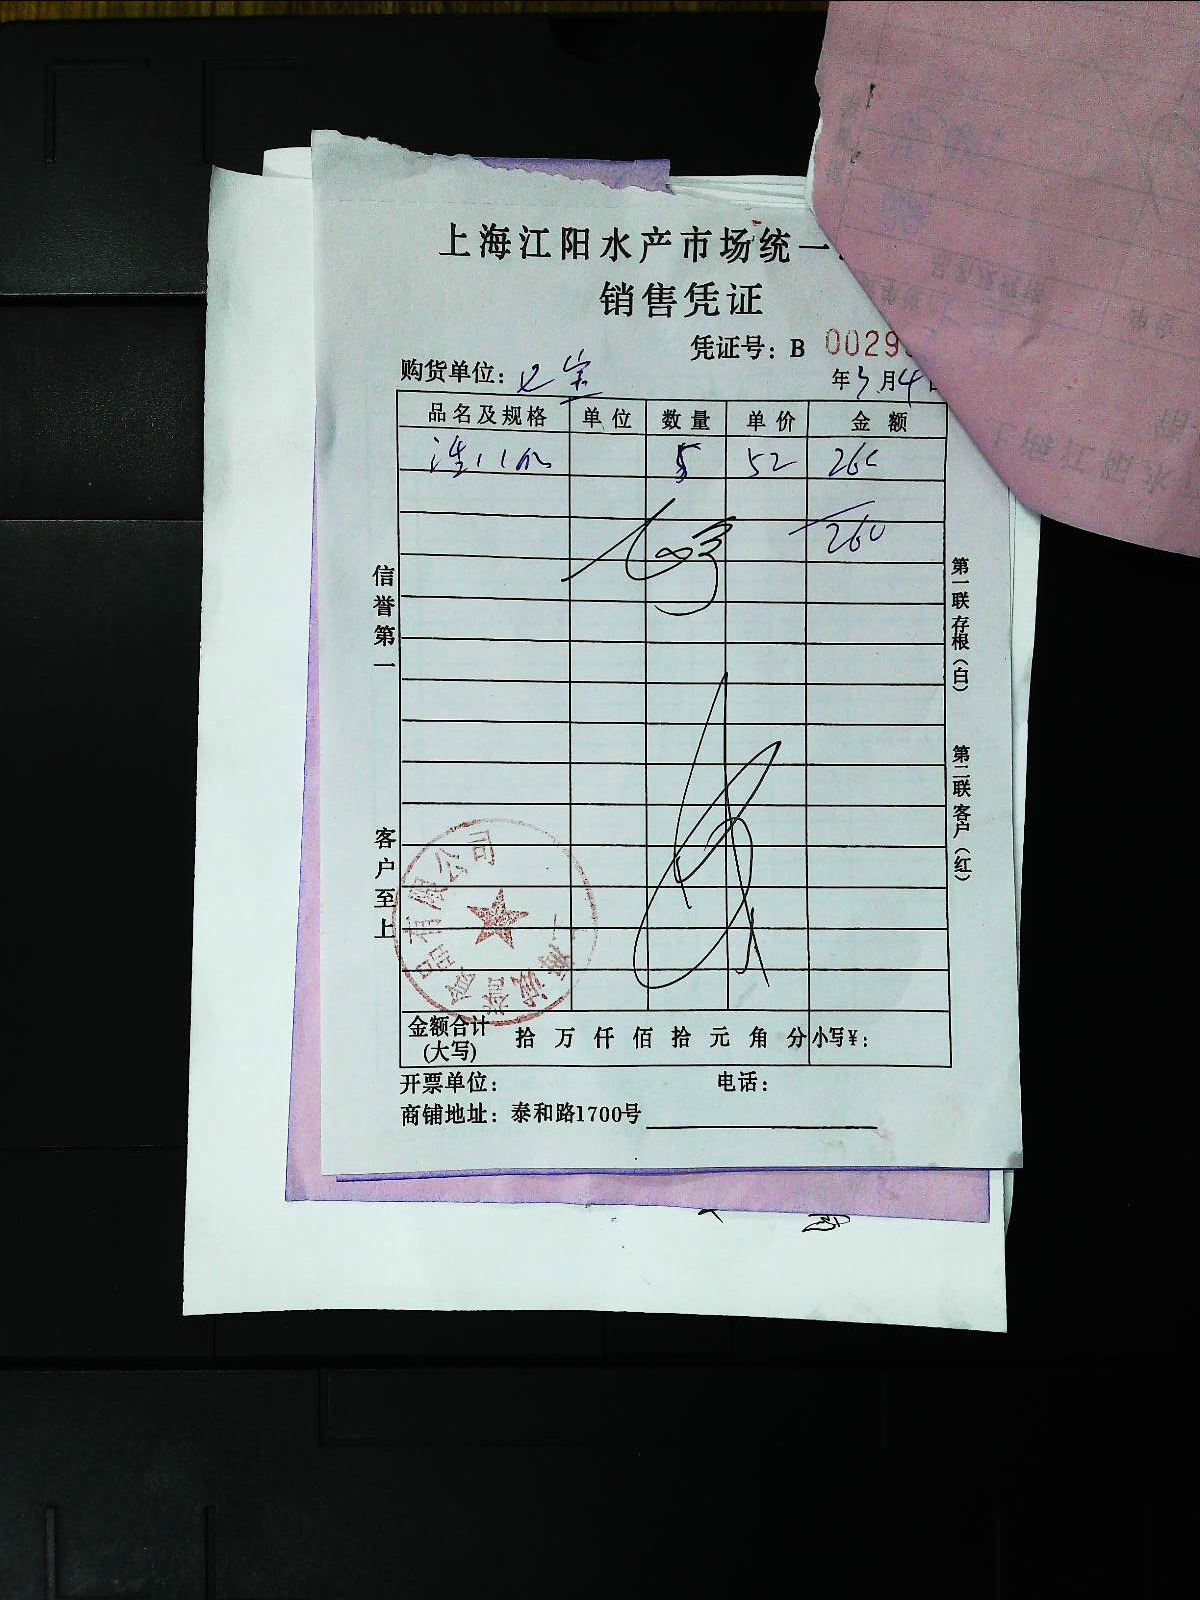 上海江阳水产市场统一
销售凭证
凭证号：B 0029
购货单位：七宝 年3月4日
品名及规格 单位 数量 单价 金额
5 52 260
260
信誉第一
客户至上
第一联存根（白）
第二联客户（红）
有限公司
上海诚誉
金额合计(大写) 拾 万 仟 佰 拾 元 角 分 小写¥：
开票单位： 电话：
商铺地址：泰和路1700号